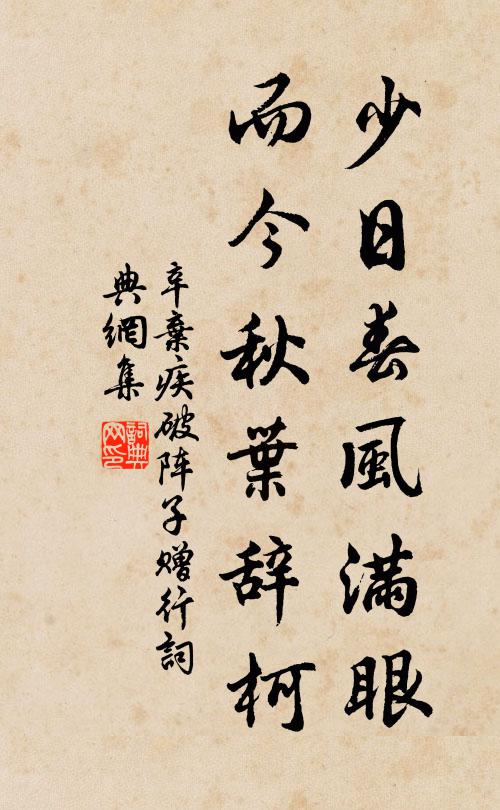 少日春風滿眼
而今秋葉辞柯
辛棄疾破阵子赠行詞
典網集
詞典
网印